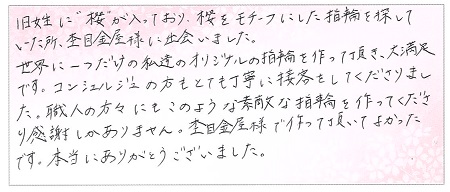 旧姓に"桜"が入っており、桜をモチーフにした指輪を探して
いた所、杢目金屋様に出会いました。
世界に一つだけの私達のオリジナルの指輪を作って頂き、大満足
です。コンシェルジュの方もとても丁寧に接客をしてくださりまし
た。職人の方々にもこのような素敵な指輪を作ってくださ
り感謝しかありません。杢目金屋様で作って頂いてよかった
です。本当にありがとうございました。